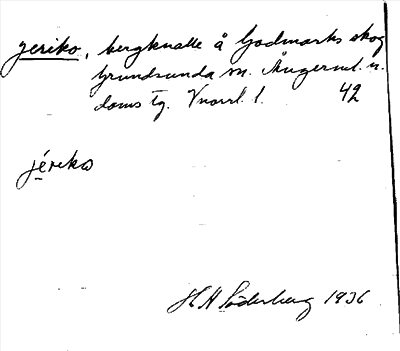 Jeriko, bergknalle å Godmarks skog
Grundsunda sn. Ångerml. n.
doms tg. Vnorrl. l. 42
jériko
H H Söderberg 1936